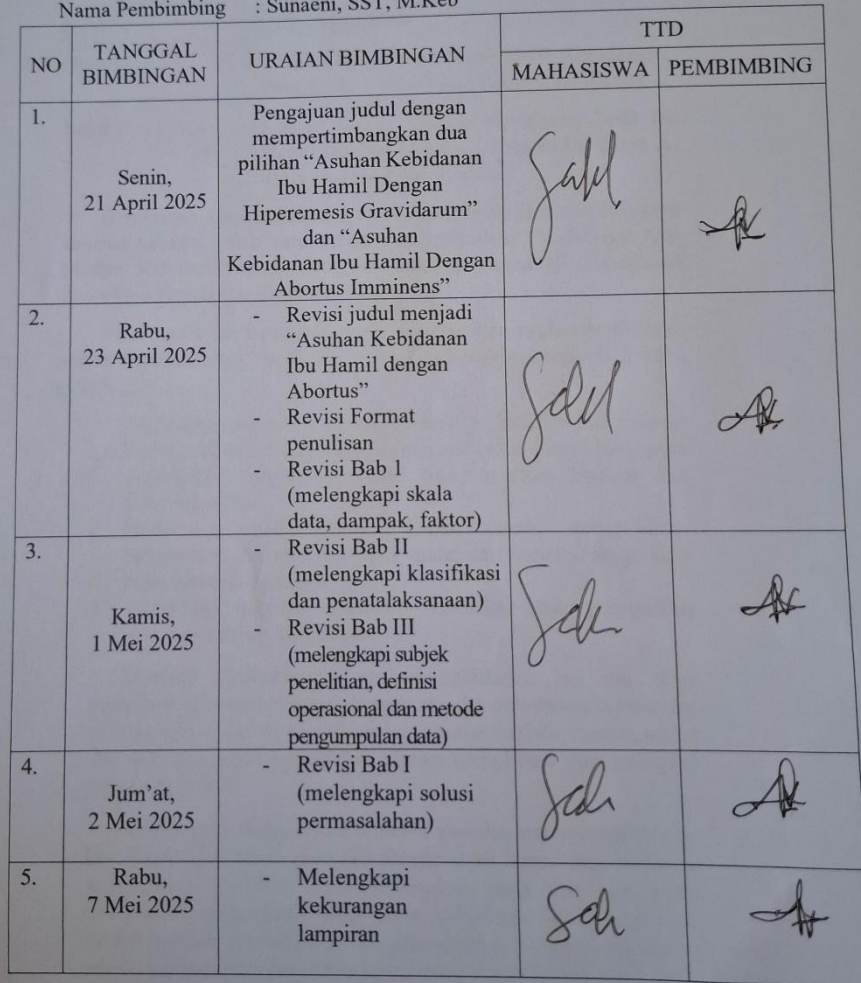 Nama Pembimbing : Sunaeni, SST, M.Keb
NO TANGGAL BIMBINGAN URAIAN BIMBINGAN TTD
MAHASISWA PEMBIMBING
1.
Senin,
21 April 2025
Pengajuan judul dengan
mempertimbangkan dua
pilihan “Asuhan Kebidanan
Ibu Hamil Dengan
Hiperemesis Gravidarum”
dan “Asuhan
Kebidanan Ibu Hamil Dengan
Abortus Imminens”
2.
Rabu,
23 April 2025
- Revisi judul menjadi
“Asuhan Kebidanan
Ibu Hamil dengan
Abortus”
- Revisi Format
penulisan
- Revisi Bab 1
(melengkapi skala
data, dampak, faktor)
3.
Kamis,
1 Mei 2025
- Revisi Bab II
(melengkapi klasifikasi
dan penatalaksanaan)
- Revisi Bab III
(melengkapi subjek
penelitian, definisi
operasional dan metode
pengumpulan data)
4.
Jum’at,
2 Mei 2025
- Revisi Bab I
(melengkapi solusi
permasalahan)
5.
Rabu,
7 Mei 2025
- Melengkapi
kekurangan
lampiran